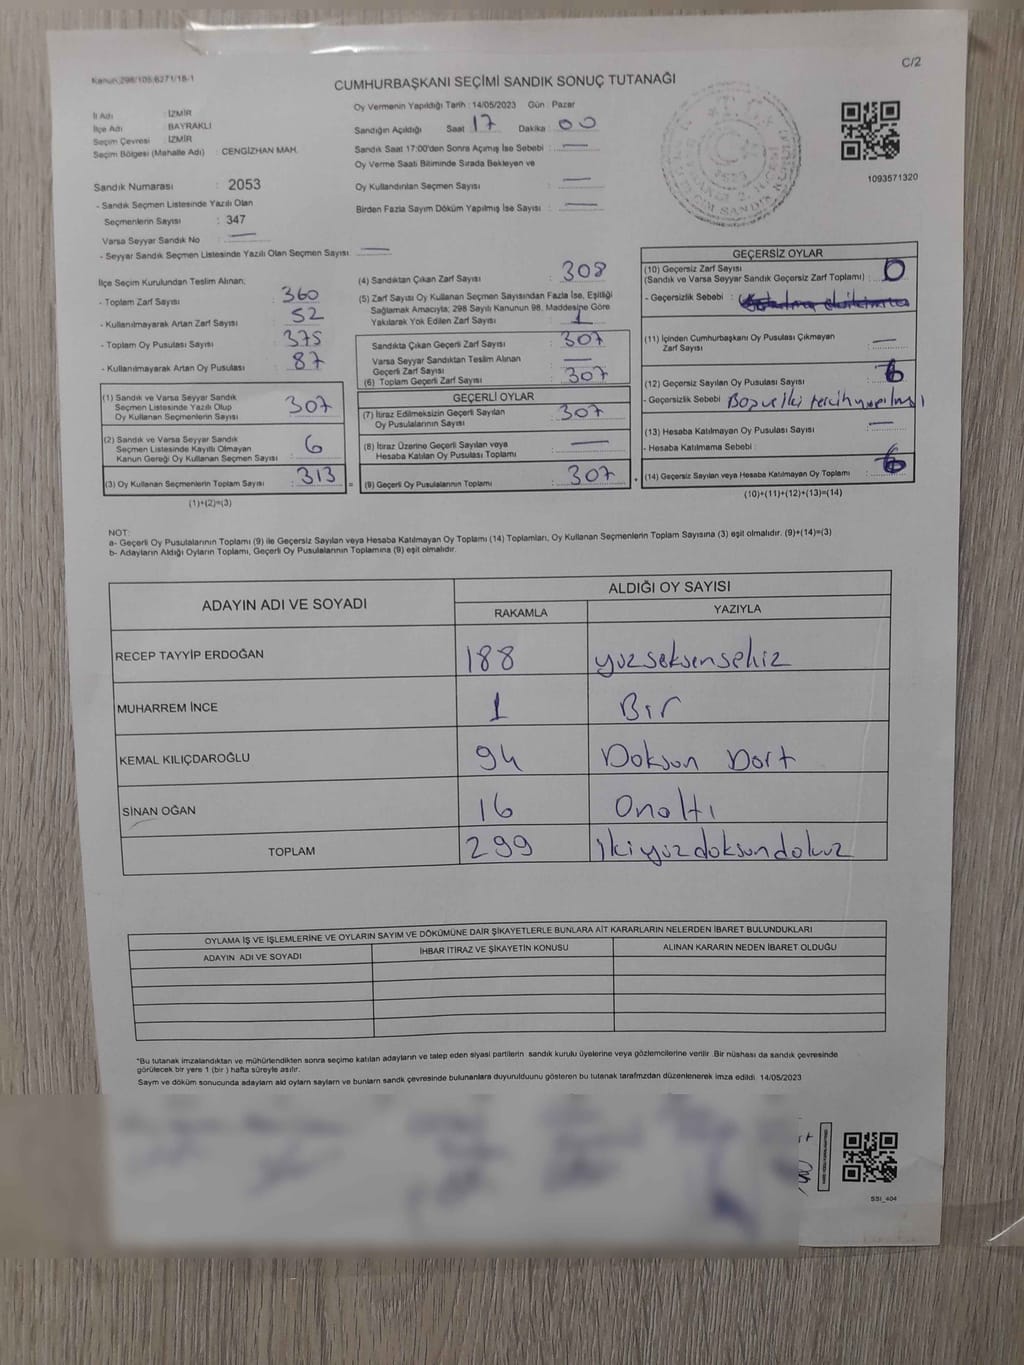 C/2
Kanun:298/105:6271/18-1
CUMHURBAŞKANI SEÇİMİ SANDIK SONUÇ TUTANAĞI
İl Adı : İZMİR
İlçe Adı : BAYRAKLI
Seçim Çevresi : İZMİR
Seçim Bölgesi (Mahalle Adı) : CENGİZHAN MAH.
Sandık Numarası : 2053
- Sandık Seçmen Listesinde Yazılı Olan
Seçmenlerin Sayısı : 347
Varsa Seyyar Sandık No : —
- Seyyar Sandık Seçmen Listesinde Yazılı Olan Seçmen Sayısı : —
Oy Vermenin Yapıldığı Tarih : 14/05/2023 Gün : Pazar
Sandığın Açıldığı Saat : 17 Dakika : 00
Sandık Saat 17:00'den Sonra Açımış İse Sebebi : —
Oy Verme Saati Bitiminde Sırada Bekleyen ve
Oy Kullandırılan Seçmen Sayısı : —
Birden Fazla Sayım Döküm Yapılmış İse Sayısı : —
1093571320
İlçe Seçim Kurulundan Teslim Alınan;
- Toplam Zarf Sayısı : 360
- Kullanılmayarak Artan Zarf Sayısı : 52
- Toplam Oy Pusulası Sayısı : 375
- Kullanılmayarak Artan Oy Pusulası : 87
(1) Sandık ve Varsa Seyyar Sandık
Seçmen Listesinde Yazılı Olup
Oy Kullanan Seçmenlerin Sayısı : 307
(2) Sandık ve Varsa Seyyar Sandık
Seçmen Listesinde Kayıtlı Olmayan
Kanun Gereği Oy Kullanan Seçmen Sayısı : 6
(3) Oy Kullanan Seçmenlerin Toplam Sayısı : 313 =
(1)+(2)=(3)
(4) Sandıktan Çıkan Zarf Sayısı : 308
(5) Zarf Sayısı Oy Kullanan Seçmen Sayısından Fazla İse, Eşitliği
Sağlamak Amacıyla; 298 Sayılı Kanunun 98. Maddesine Göre
Yakılarak Yok Edilen Zarf Sayısı : 1
Sandıkta Çıkan Geçerli Zarf Sayısı : 307
Varsa Seyyar Sandıktan Teslim Alınan
Geçerli Zarf Sayısı : —
(6) Toplam Geçerli Zarf Sayısı : 307
GEÇERLİ OYLAR
(7) İtiraz Edilmeksizin Geçerli Sayılan
Oy Pusulalarının Sayısı : 307
(8) İtiraz Üzerine Geçerli Sayılan veya
Hesaba Katılan Oy Pusulası Toplamı : —
(9) Geçerli Oy Pusulalarının Toplamı : 307 +
GEÇERSİZ OYLAR
(10) Geçersiz Zarf Sayısı
(Sandık ve Varsa Seyyar Sandık Geçersiz Zarf Toplamı) : 0
- Geçersizlik Sebebi :
(11) İçinden Cumhurbaşkanı Oy Pusulası Çıkmayan
Zarf Sayısı : —
(12) Geçersiz Sayılan Oy Pusulası Sayısı : 6
- Geçersizlik Sebebi
(13) Hesaba Katılmayan Oy Pusulası Sayısı : —
- Hesaba Katılmama Sebebi :
(14) Geçersiz Sayılan veya Hesaba Katılmayan Oy Toplamı : 6
(10)+(11)+(12)+(13)=(14)
NOT:
a- Geçerli Oy Pusulalarının Toplamı (9) ile Geçersiz Sayılan veya Hesaba Katılmayan Oy Toplamı (14) Toplamları, Oy Kullanan Seçmenlerin Toplam Sayısına (3) eşit olmalıdır. (9)+(14)=(3)
b- Adayların Aldığı Oyların Toplamı, Geçerli Oy Pusulalarının Toplamına (9) eşit olmalıdır.
ADAYIN ADI VE SOYADI
ALDIĞI OY SAYISI
RAKAMLA YAZIYLA
RECEP TAYYİP ERDOĞAN 188 yüzseksensekiz
MUHARREM İNCE 1 Bir
KEMAL KILIÇDAROĞLU 94 Doksan Dört
SİNAN OĞAN 16 Onaltı
TOPLAM 299 ikiyüzdoksandokuz
OYLAMA İŞ VE İŞLEMLERİNE VE OYLARIN SAYIM VE DÖKÜMÜNE DAİR ŞİKAYETLERLE BUNLARA AİT KARARLARIN NELERDEN İBARET BULUNDUKLARI
ADAYIN ADI VE SOYADI İHBAR İTİRAZ VE ŞİKAYETİN KONUSU ALINAN KARARIN NEDEN İBARET OLDUĞU
*Bu tutanak imzalandıktan ve mühürlendikten sonra seçime katılan adayların ve talep eden siyasi partilerin sandık kurulu üyelerine veya gözlemcilerine verilir. Bir nüshası da sandık çevresinde
görülecek bir yere 1 (bir ) hafta süreyle asılır.
Sayım ve döküm sonucunda adayların ald oyların sayların ve bunların sandk çevresinde bulunanlara duyurulduunu gösteren bu tutanak tarafmzdan düzenlenerek imza edildi. 14/05/2023
SSI_404